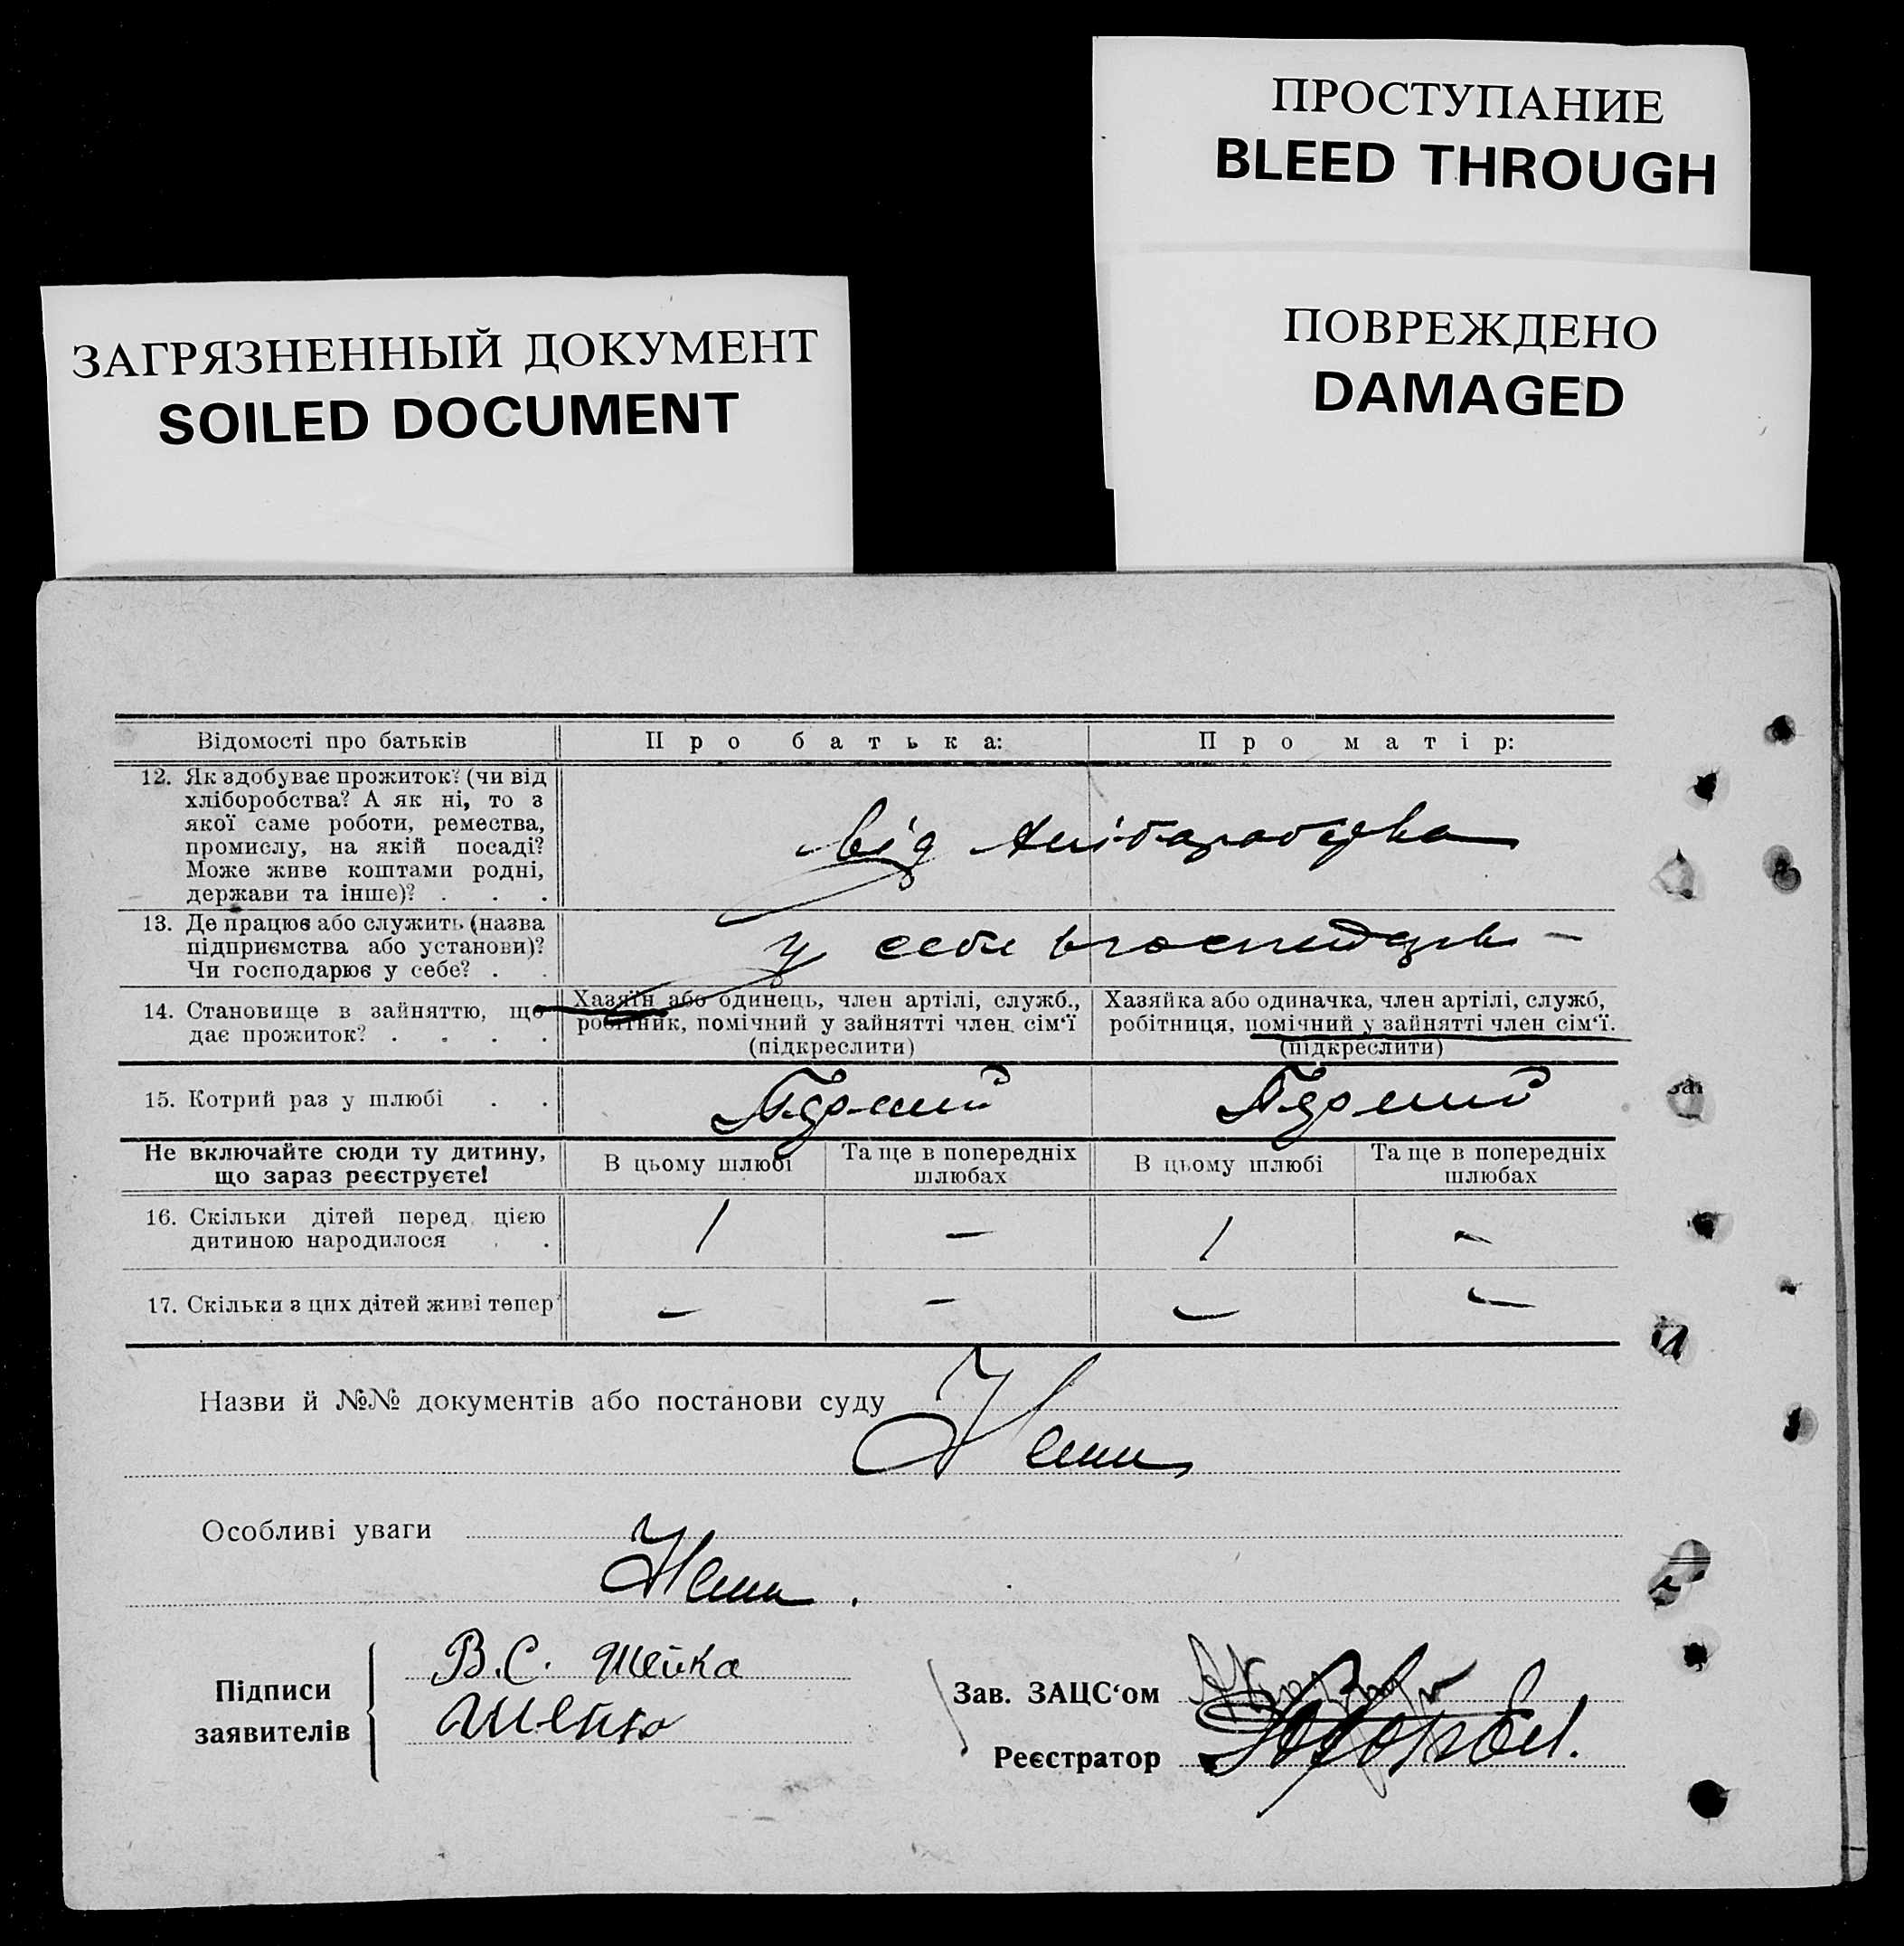 ПРОСТУПАНИЕ
BLEED THROUGH
ЗАГРЯЗНЕННЫЙ ДОКУМЕНТ
SOILED DOCUMENT
ПОВРЕЖДЕНО
DAMAGED
Відомості про батьків
Про батька:
Про матір:
12. Як здобуває прожиток? (чи від
хліборобства? А як ні, то з
якої саме роботи, ремества,
промислу, на якій посаді?
Може живе коштами родні,
держави та інше)? . . .
від
13. Де працює або служить (назва
підприємства або установи)?
Чи господарює у себе? . .
у себе
14. Становище в зайняттю, що
дає прожиток? . . . .
Хазяїн або одинець, член артілі, служб.,
робітник, помічний у зайнятті член сім‘ї
(підкреслити)
Хазяйка або одиначка, член артілі, служб,
робітниця, помічний у зайнятті член сім‘ї.
(підкреслити)
15. Котрий раз у шлюбі . .
Перший
Перший
Не включайте сюди ту дитину,
що зараз реєструєте!
В цьому шлюбі
Та ще в попередніх
шлюбах
В цьому шлюбі
Та ще в попередніх
шлюбах
16. Скільки дітей перед цією
дитиною народилося . .
1
—
1
—
17. Скільки з цих дітей живі тепер
—
—
—
—
Назви й №№ документів або постанови суду
Нема
Особливі уваги
Нема.
Підписи
заявителів
В.С. Шейка
Шейко
Зав. ЗАЦС‘ом
Реєстратор